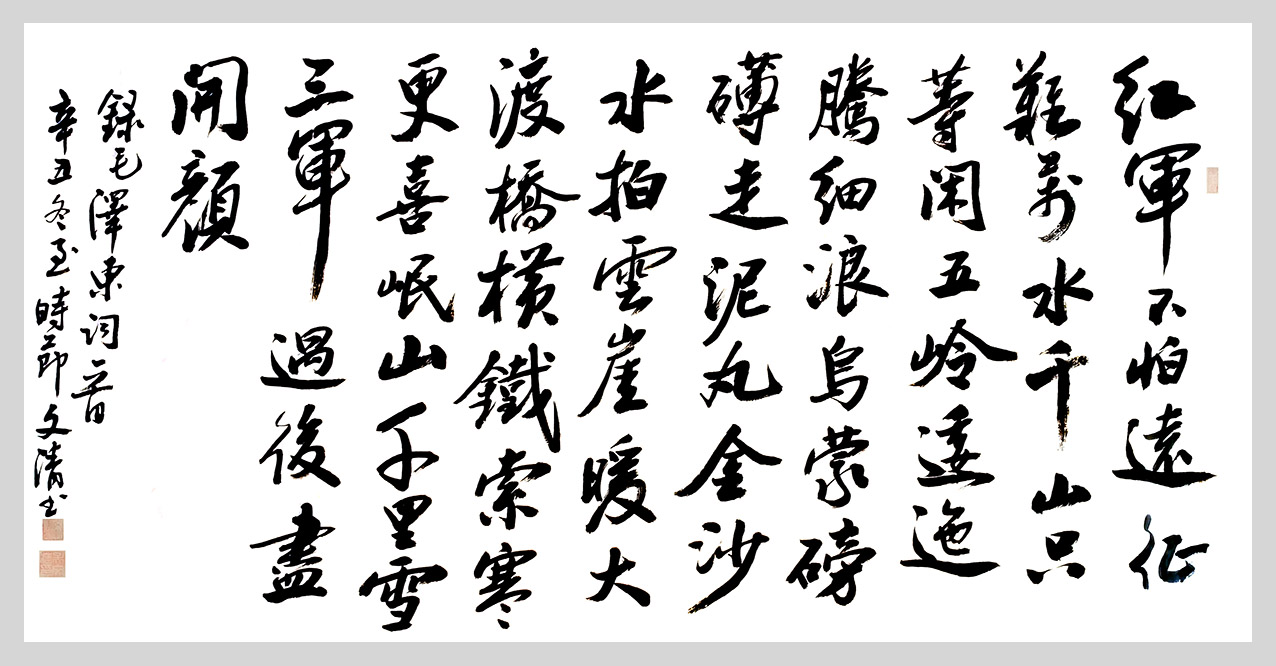 紅軍不怕遠征
難萬水千山只
等閑五岭逶迤
騰細浪烏蒙磅
礴走泥丸金沙
水拍雲崖暖大
渡橋橫鐵索寒
更喜岷山千里雪
三軍過後盡
開顏
錄毛澤東詞一首
辛丑冬至時節文清书